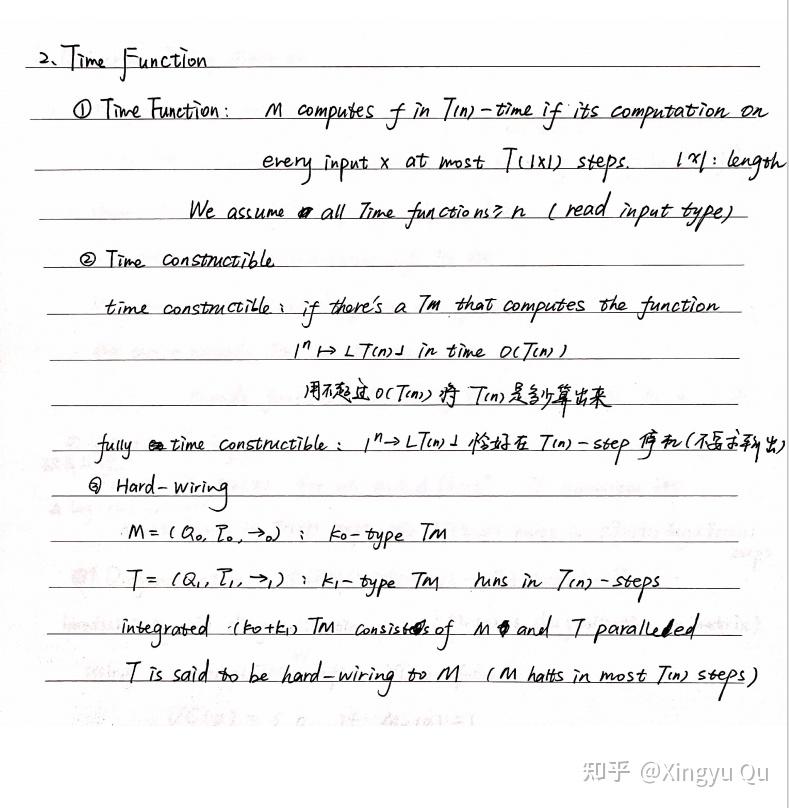 2、Time Function
① Time Function: M computes f in T(n)-time if its computation on
every input x at most T(|x|) steps. |x|: length
We assume all Time functions ≥ n (read input type)
② Time constructible
time constructible: if there's a TM that computes the function
1ⁿ ↦ ⌞T(n)⌟ in time O(T(n))
用不超过 O(T(n)) 将 T(n)是多少算出来
fully time constructible: 1ⁿ → ⌞T(n)⌟ 恰好在 T(n)-step 停机(不要求输出)
③ Hard-wiring
M = (Q₀, Γ₀, →₀) : k₀-type TM
T = (Q₁, Γ₁, →₁) : k₁-type TM runs in T(n)-steps
integrated (k₀+k₁) TM consists of M and T paralleled
T is said to be hard-wiring to M (M halts in most T(n) steps)
知乎 @Xingyu Qu